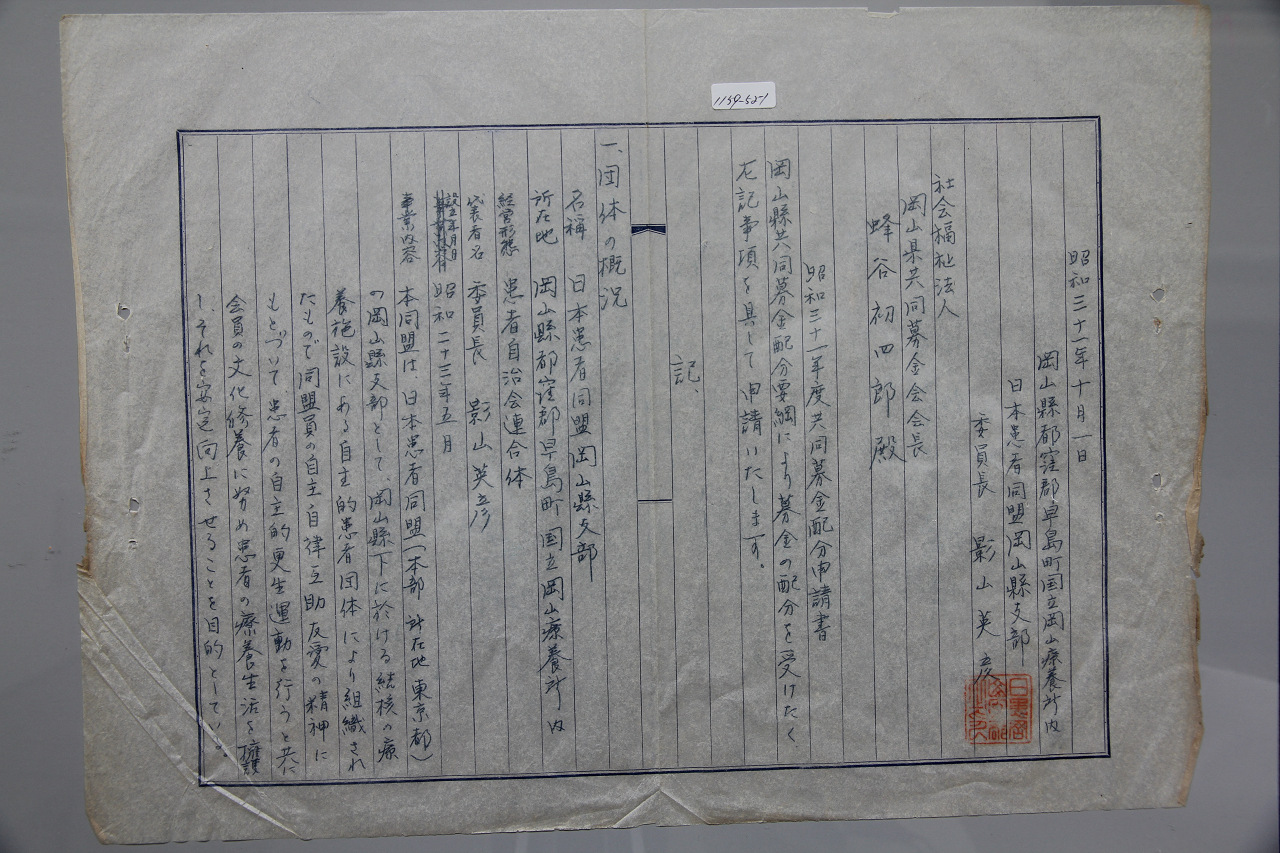 1159-527
昭和三十一年十月一日
岡山縣都窪郡早島町国立岡山療養所内
日本患者同盟岡山縣支部
委員長 影山英彦
社会福祉法人
岡山県共同募金会会長
蜂谷初四郎殿
昭和三十一年度共同募金配分申請書
岡山縣共同募金配分要綱により募金の配分を受けたく
左記事項を具して申請いたします。
記、
一、団体の概況
名稱 日本患者同盟岡山縣支部
所在地 岡山縣都窪郡早島町国立岡山療養所内
経営形態 患者自治会連合体
代表者名 委員長 影山英彦
設立年月日 昭和二十三年五月
事業内容 本同盟は、日本患者同盟(本部 所在地東京都)
の岡山縣支部として、岡山縣下に於ける結核の療
養施設にある自主的患者団体により組織され
たもので同盟員の自主自律互助友愛の精神に
もとづいて、患者の自主的更生運動を行うと共に
会員の文化修養に努め患者の療養生活を擁護
し、それを安定向上させることを目的としている。